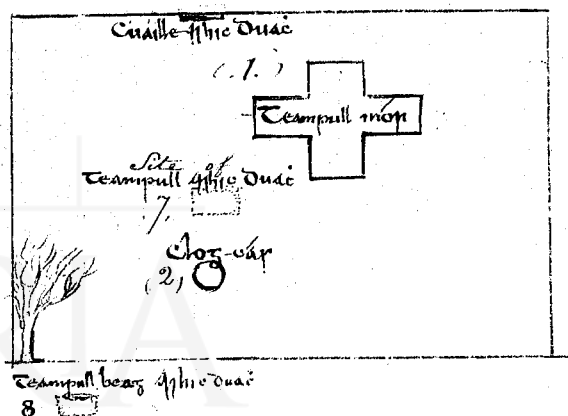 Cuaille Mhic Duaċ
(1.)
Teampull mór
Site of
Teampull Mhic Duaċ
7.
Clog-ċár
(2)
Teampull beag Mhic Duaċ
8